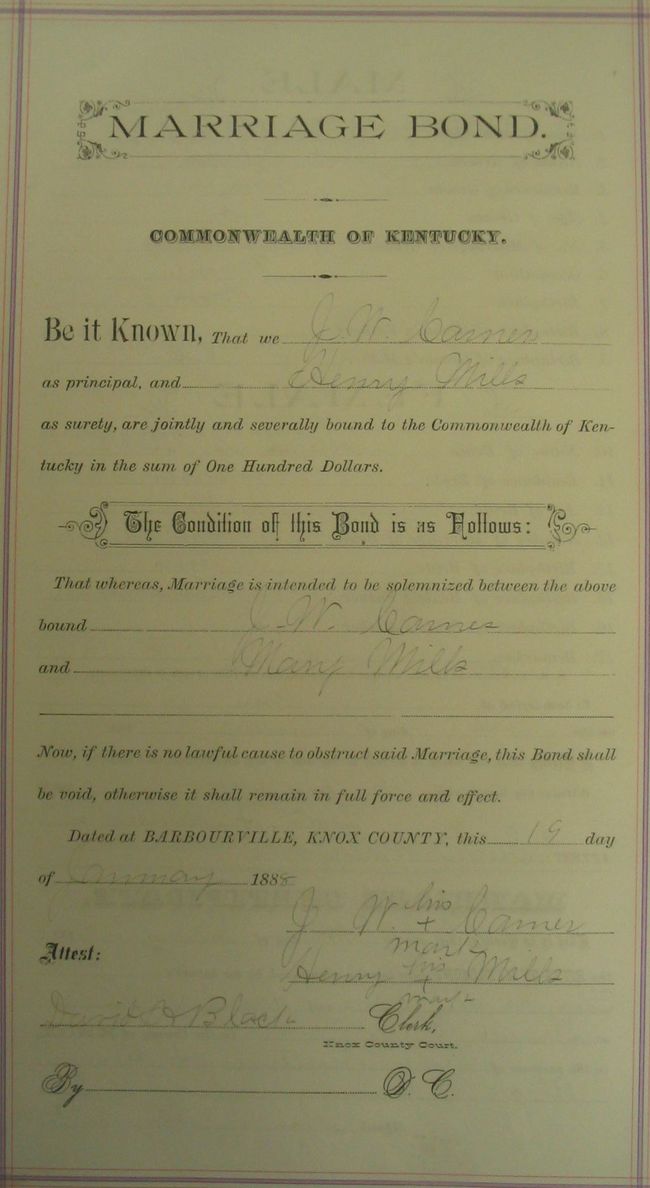 MARRIAGE BOND.
COMMONWEALTH OF KENTUCKY.
Be it Known, That we J. W. Carnes
as principal, and Henry Mills
as surety, are jointly and severally bound to the Commonwealth of Ken-
tucky in the sum of One Hundred Dollars.
The Condition of this Bond is as Follows:
That whereas, Marriage is intended to be solemnized between the above
bound J. W. Carnes
and Mary Mills
Now, if there is no lawful cause to obstruct said Marriage, this Bond shall
be void, otherwise it shall remain in full force and effect.
Dated at BARBOURVILLE, KNOX COUNTY, this 19 day
of January 1888
his
J. W. + Carnes
mark
Attest:
his
Henry + Mills
mark
David H Black Clerk,
Knox County Court.
By D. C.